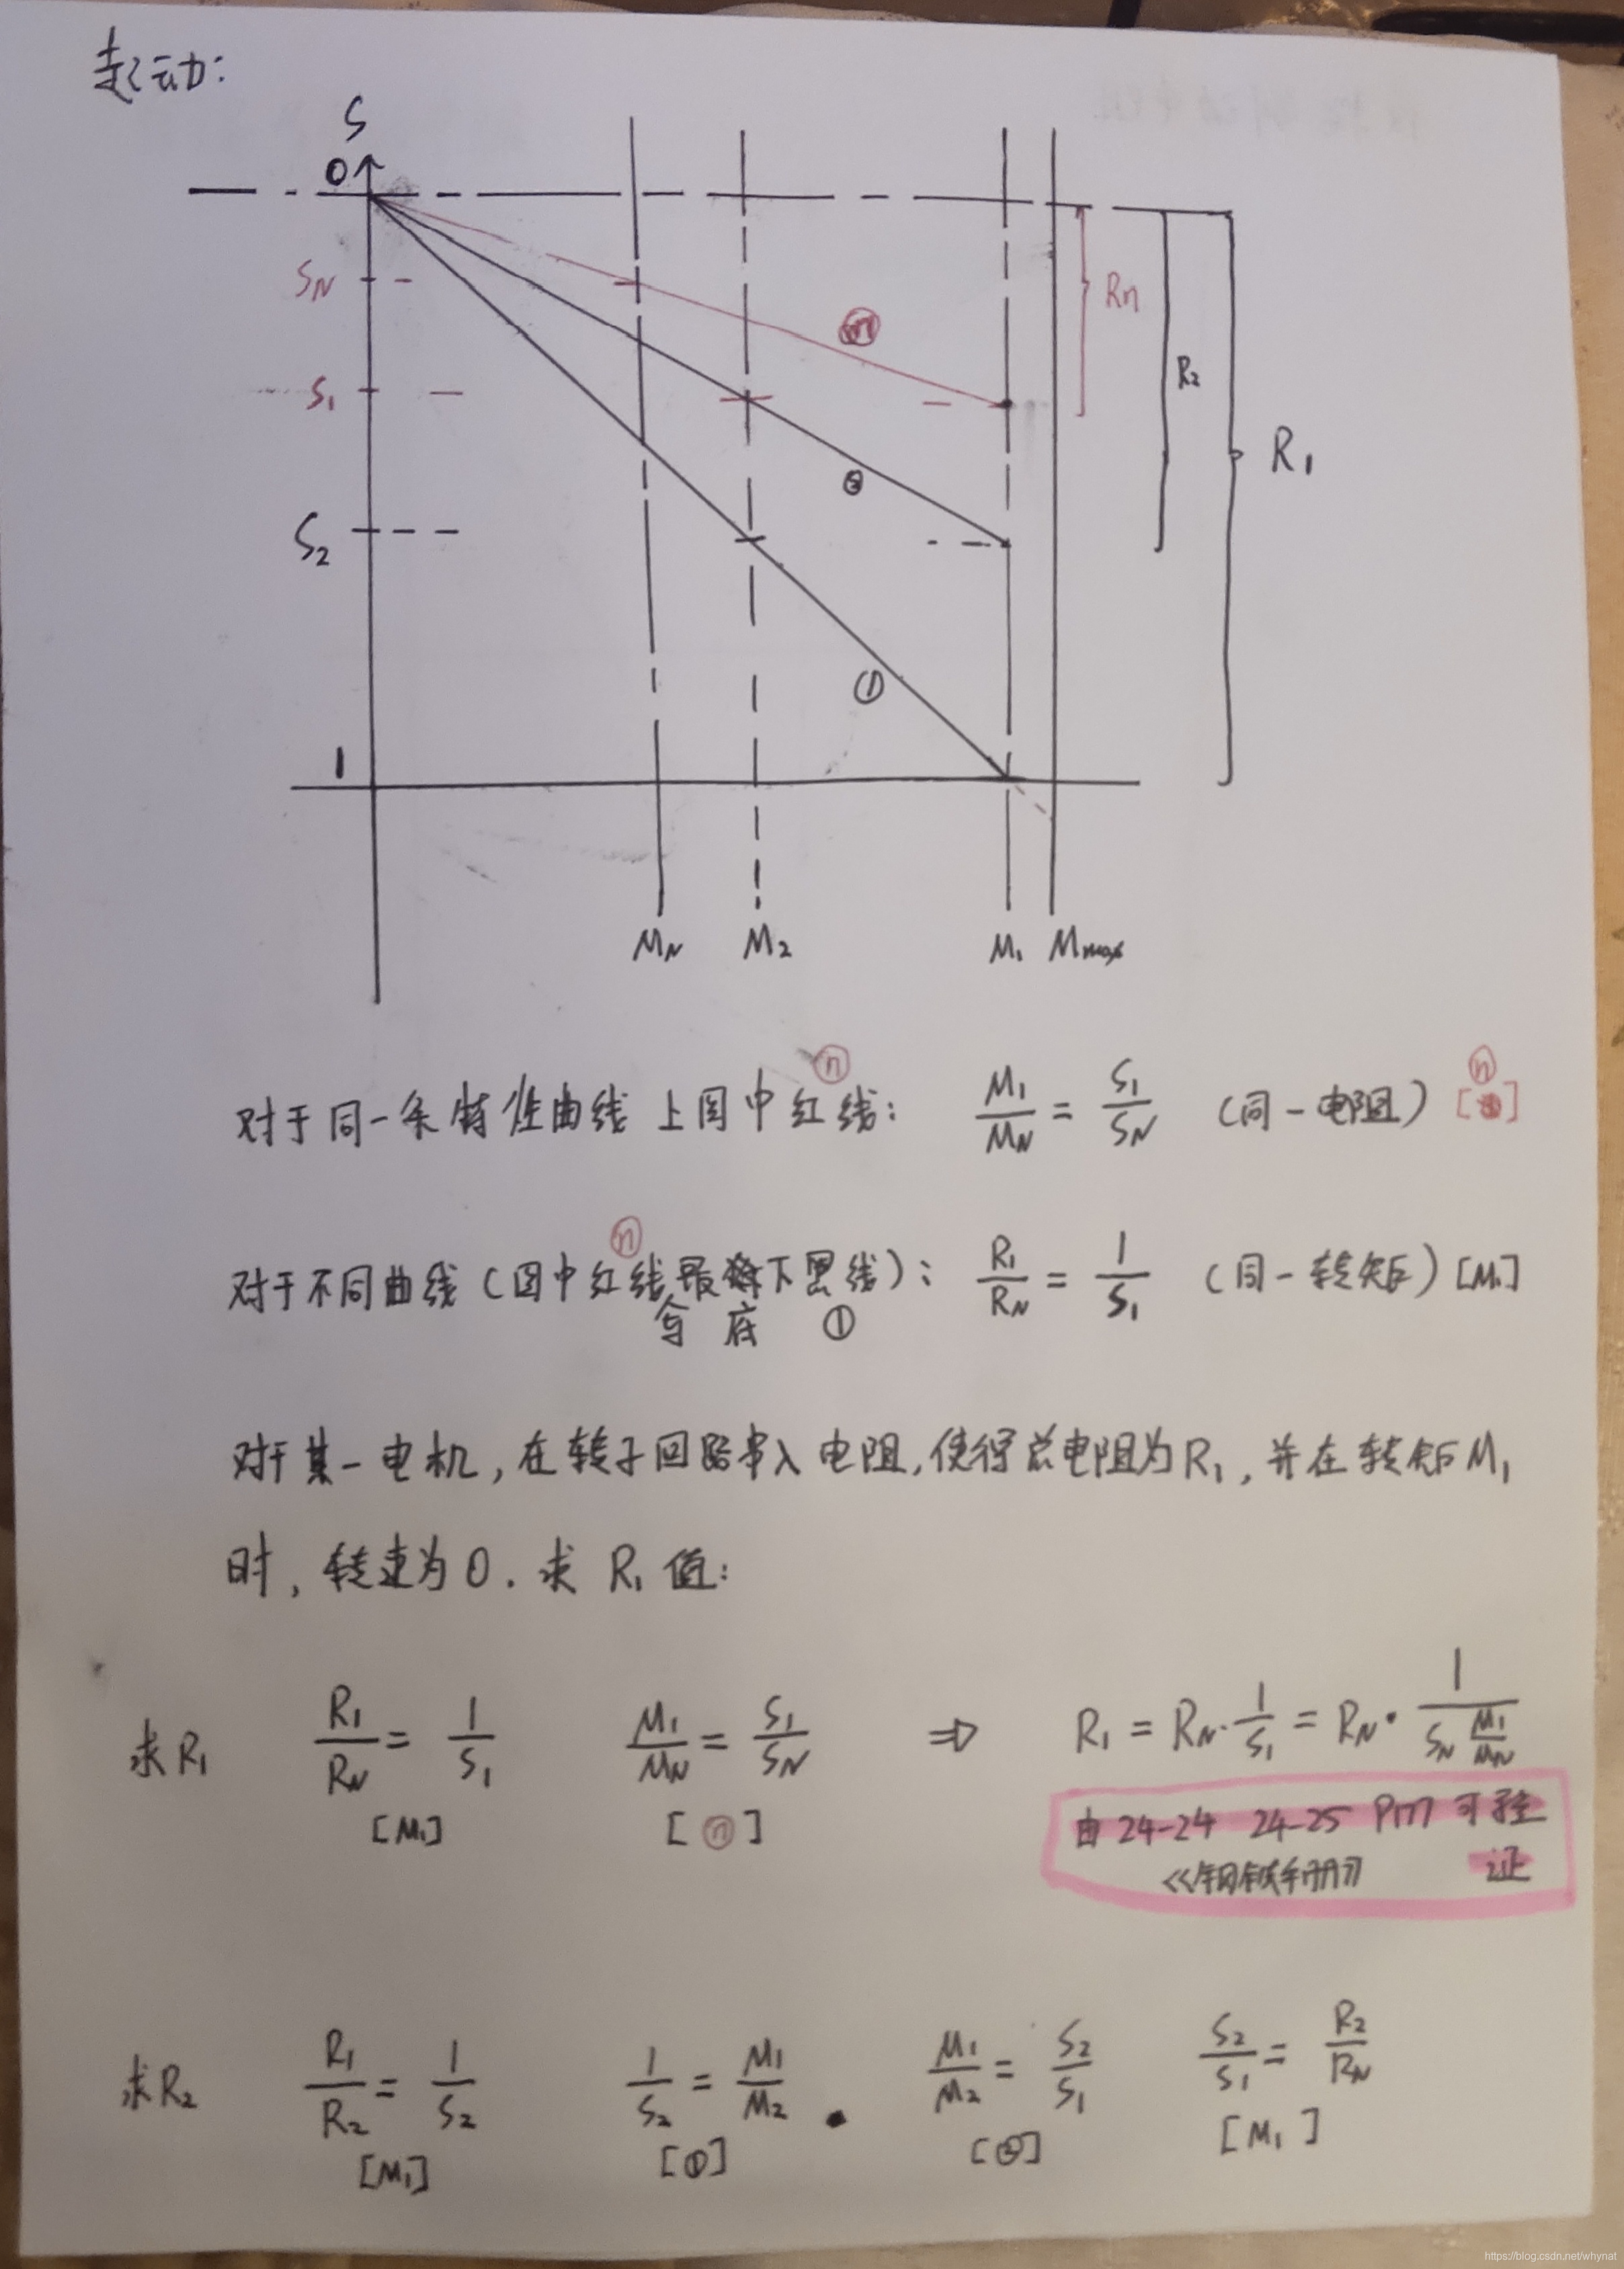 起动:
S
0
SN
S1
S2
1
n
②
①
Rn
R2
R1
MN M2 M1 Mmax
对于同一条特性曲线 上图中红线: M1/MN = S1/SN (同一电阻) [n]
n
对于不同曲线(图中红线与最底下黑线): R1/RN = 1/S1 (同一转矩) [M1]
n ①
对于某一电机,在转子回路串入电阻,使得总电阻为R1,并在转矩M1
时,转速为0.求 R1 值:
求R1 R1/RN = 1/S1 M1/MN = S1/SN ⇒ R1 = RN·1/S1 = RN·1/(SN M1/MN)
[M1] [n]
由 24-24 24-25 P177 可验证
《钢铁手册》
求R2 R1/R2 = 1/S2 1/S2 = M1/M2 . M1/M2 = S2/S1 S2/S1 = R2/RN
[M1] [①] [②] [M1]
https://blog.csdn.net/whynat